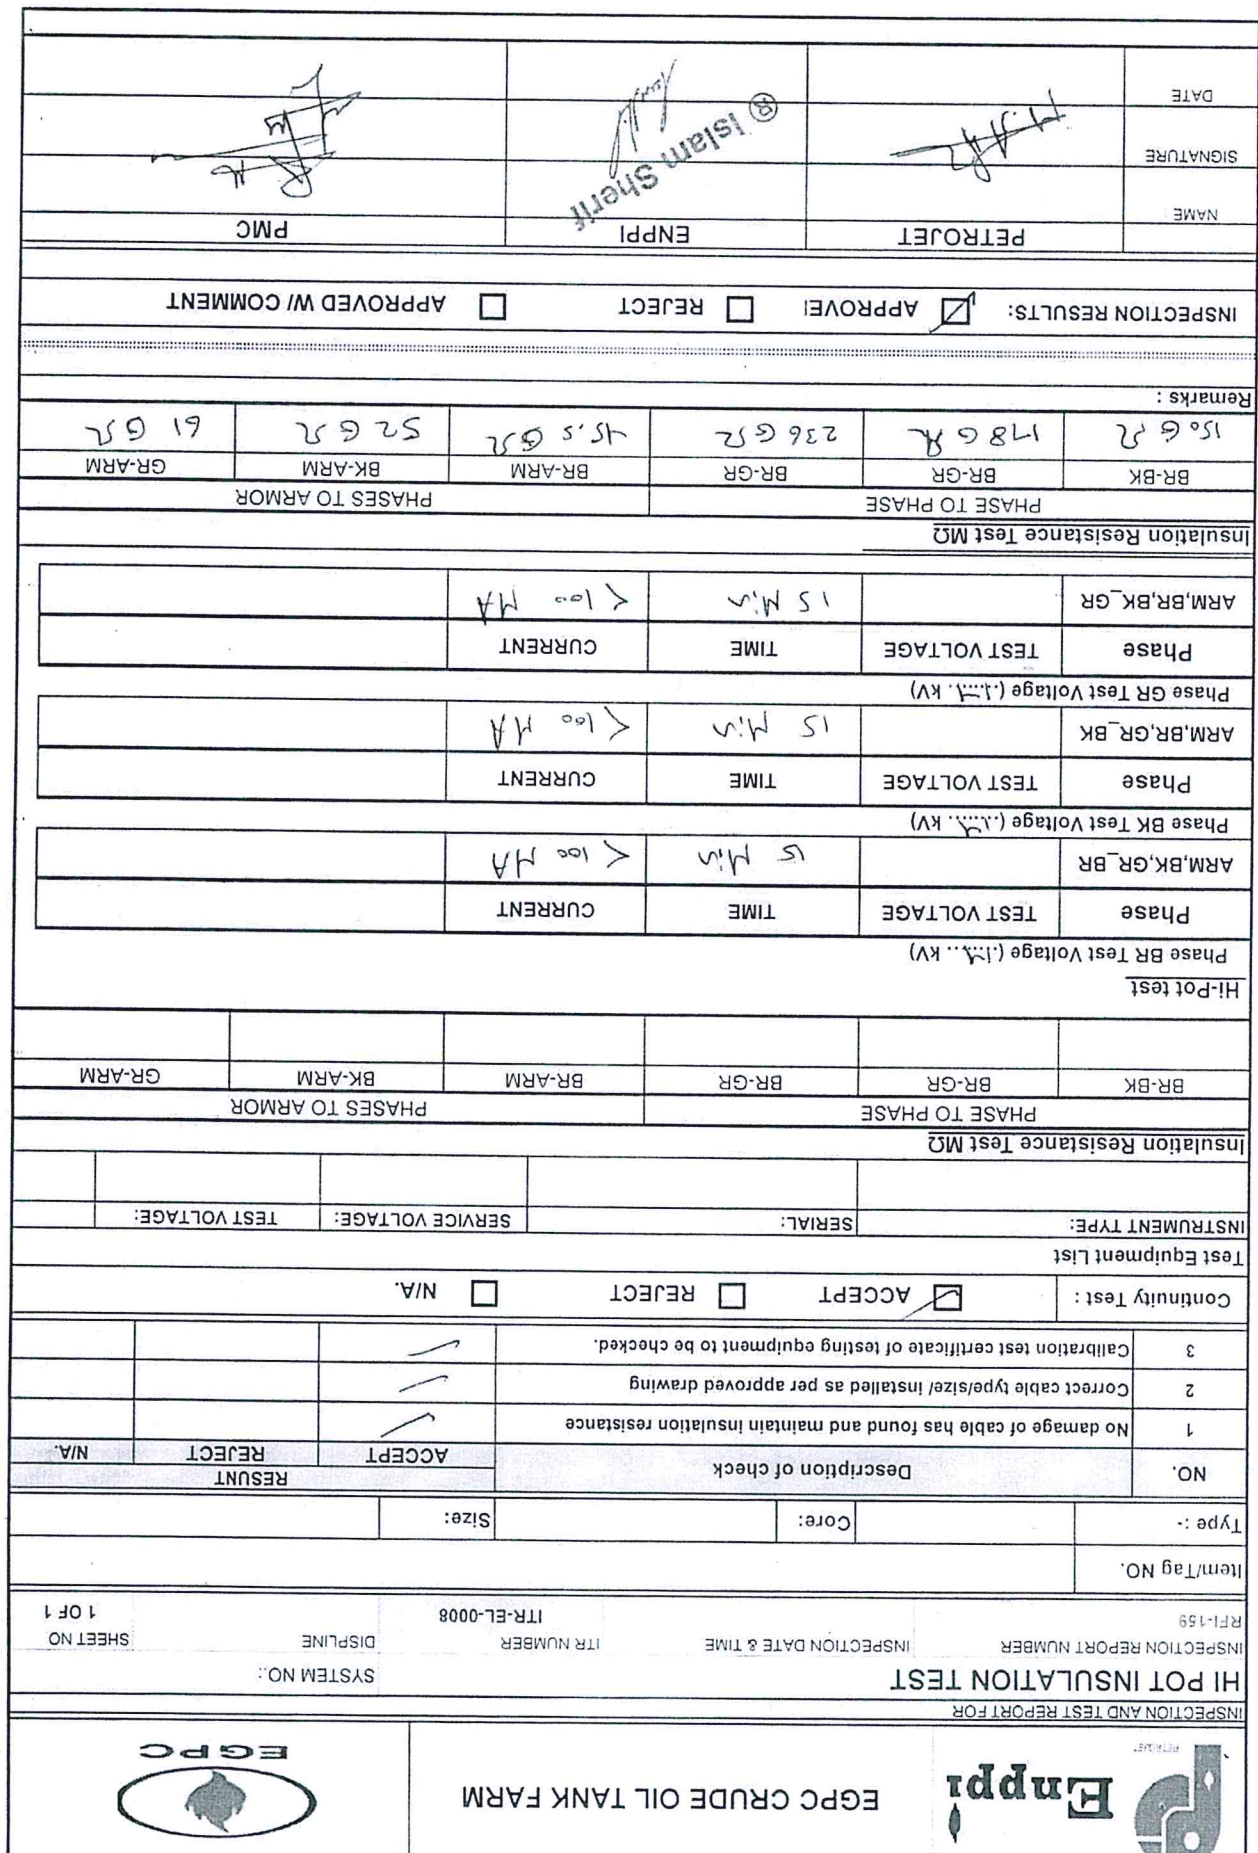 PETROJET
Enppi
EGPC CRUDE OIL TANK FARM
EGPC
INSPECTION AND TEST REPORT FOR
HI POT INSULATION TEST
SYSTEM NO.:
INSPECTION REPORT NUMBER INSPECTION DATE & TIME ITR NUMBER DISPLINE SHEET NO
RFI-159 ITR-EL-0008 1 OF 1
Item/Tag NO.
Type :- Core: Size:
NO. Description of check RESUNT
ACCEPT REJECT N/A.
1 No damage of cable has found and maintain insulation resistance
2 Correct cable type/size/ installed as per approved drawing
3 Calibration test certificate of testing equipment to be checked.
Continuity Test : ACCEPT REJECT N/A.
Test Equipment List
INSTRUMENT TYPE: SERIAL: SERVICE VOLTAGE: TEST VOLTAGE:
Insulation Resistance Test MΩ
PHASE TO PHASE PHASES TO ARMOR
BR-BK BR-GR BR-GR BR-ARM BK-ARM GR-ARM
Hi-Pot test
Phase BR Test Voltage ( kV)
Phase TEST VOLTAGE TIME CURRENT
ARM,BK,GR_BR 15 Min < 100 MA
Phase BK Test Voltage ( kV)
Phase TEST VOLTAGE TIME CURRENT
ARM,BR,GR_BK 15 Min < 100 MA
Phase GR Test Voltage ( kV)
Phase TEST VOLTAGE TIME CURRENT
ARM,BR,BK_GR 15 Min < 100 MA
Insulation Resistance Test MΩ
PHASE TO PHASE PHASES TO ARMOR
BR-BK BR-GR BR-GR BR-ARM BK-ARM GR-ARM
150 GΩ 178 GΩ 236 GΩ 45.5 GΩ 52 GΩ 61 GΩ
Remarks :
INSPECTION RESULTS: APPROVE REJECT APPROVED W/ COMMENT
PETROJET ENPPI PMC
NAME
SIGNATURE
DATE
® Islam Sherif